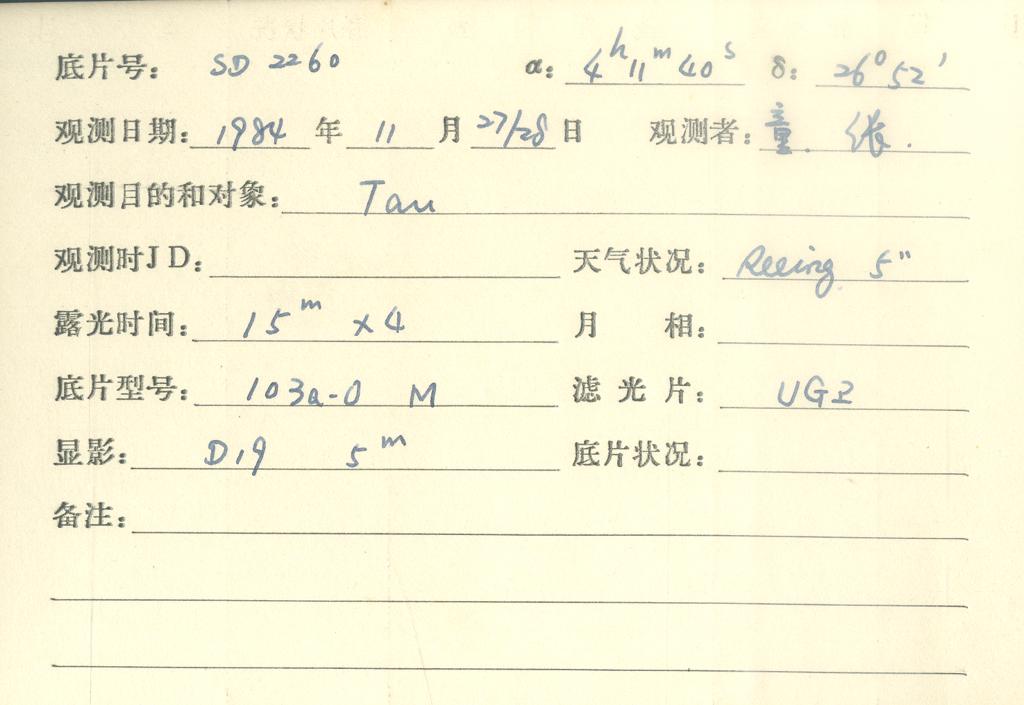 底片号: SD 2260 α: 4h 11m 40s δ: 26° 52'
观测日期: 1984 年 11 月 27/28 日 观测者: 童. 张.
观测目的和对象: Tau
观测时JD: 天气状况: Seeing 5"
露光时间: 15m ×4 月 相:
底片型号: 103a-O M 滤光片: UG2
显影: D19 5m 底片状况:
备注: